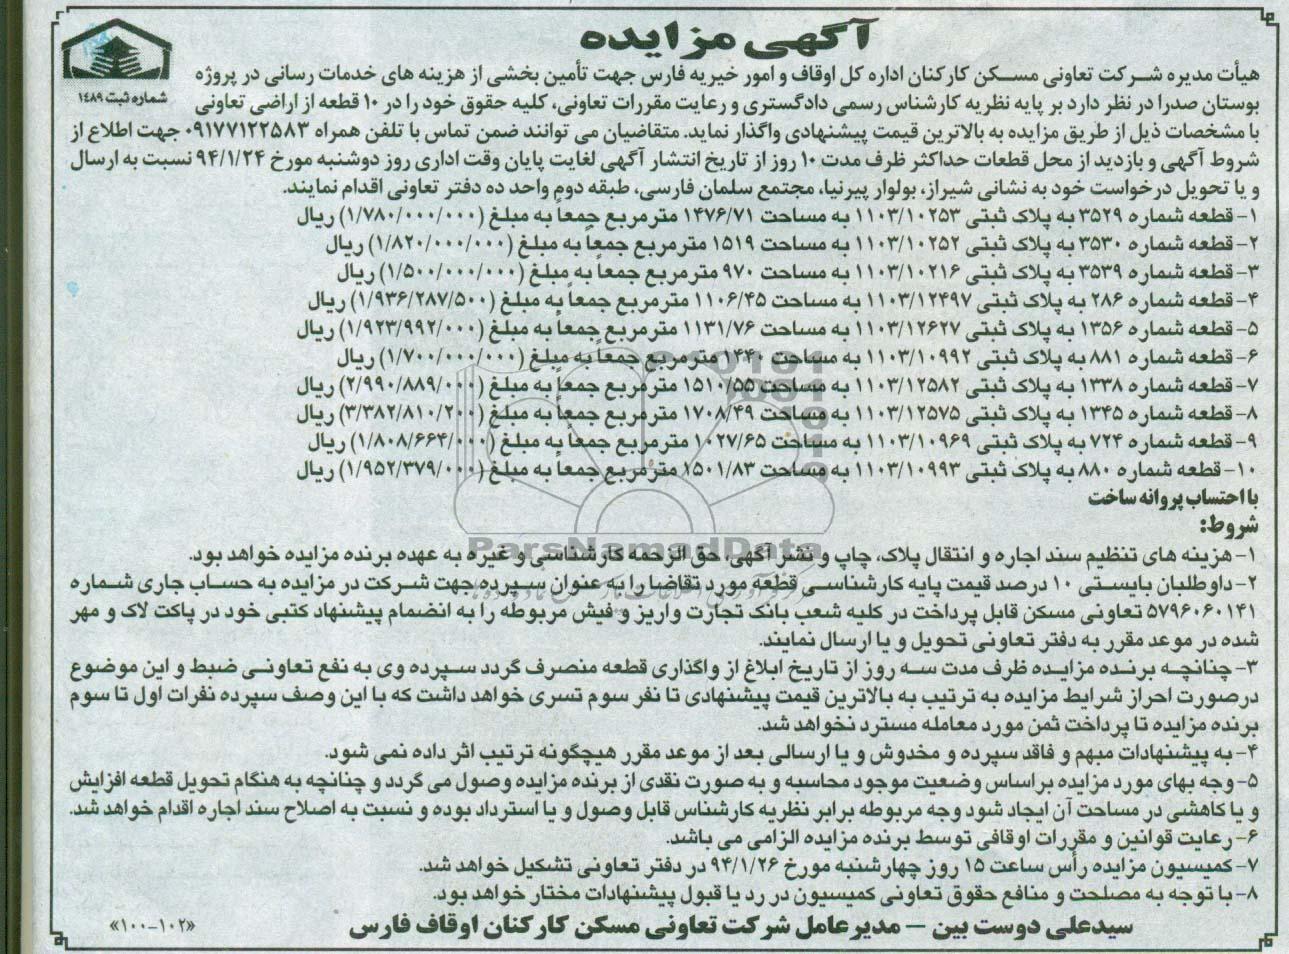 آگهی مزایده
شماره ثبت ۱۴۸۹
هیأت مدیره شرکت تعاونی مسکن کارکنان اداره کل اوقاف و امور خیریه فارس جهت تأمین بخشی از هزینه های خدمات رسانی در پروژه
بوستان صدرا در نظر دارد بر پایه نظریه کارشناس رسمی دادگستری و رعایت مقررات تعاونی، کلیه حقوق خود را در ۱۰ قطعه از اراضی تعاونی
با مشخصات ذیل از طریق مزایده به بالاترین قیمت پیشنهادی واگذار نماید. متقاضیان می توانند ضمن تماس با تلفن همراه ۰۹۱۷۷۱۲۲۵۸۳ جهت اطلاع از
شروط آگهی و بازدید از محل قطعات حداکثر ظرف مدت ۱۰ روز از تاریخ انتشار آگهی لغایت پایان وقت اداری روز دوشنبه مورخ ۹۴/۱/۲۴ نسبت به ارسال
و یا تحویل درخواست خود به نشانی شیراز، بولوار پیرنیا، مجتمع سلمان فارسی، طبقه دوم واحد ده دفتر تعاونی اقدام نمایند.
۱- قطعه شماره ۳۵۲۹ به پلاک ثبتی ۱۱۰۳/۱۰۲۵۳ به مساحت ۱۴۷۶/۷۱ مترمربع جمعاً به مبلغ (۱/۷۸۰/۰۰۰/۰۰۰) ریال
۲- قطعه شماره ۳۵۳۰ به پلاک ثبتی ۱۱۰۳/۱۰۲۵۲ به مساحت ۱۵۱۹ مترمربع جمعاً به مبلغ (۱/۸۲۰/۰۰۰/۰۰۰) ریال
۳- قطعه شماره ۳۵۳۹ به پلاک ثبتی ۱۱۰۳/۱۰۲۱۶ به مساحت ۹۷۰ مترمربع جمعاً به مبلغ (۱/۵۰۰/۰۰۰/۰۰۰) ریال
۴- قطعه شماره ۲۸۶ به پلاک ثبتی ۱۱۰۳/۱۲۴۹۷ به مساحت ۱۱۰۶/۴۵ مترمربع جمعاً به مبلغ (۱/۹۳۶/۲۸۷/۵۰۰) ریال
۵- قطعه شماره ۱۳۵۶ به پلاک ثبتی ۱۱۰۳/۱۲۶۲۷ به مساحت ۱۱۳۱/۷۶ مترمربع جمعاً به مبلغ (۱/۹۲۳/۹۹۲/۰۰۰) ریال
۶- قطعه شماره ۸۸۱ به پلاک ثبتی ۱۱۰۳/۱۰۹۹۲ به مساحت ۱۴۴۰ مترمربع جمعاً به مبلغ (۱/۷۰۰/۰۰۰/۰۰۰) ریال
۷- قطعه شماره ۱۳۳۸ به پلاک ثبتی ۱۱۰۳/۱۲۵۸۲ به مساحت ۱۵۱۰/۵۵ مترمربع جمعاً به مبلغ (۲/۹۹۰/۸۸۹/۰۰۰) ریال
۸- قطعه شماره ۱۳۴۵ به پلاک ثبتی ۱۱۰۳/۱۲۵۷۵ به مساحت ۱۷۰۸/۴۹ مترمربع جمعاً به مبلغ (۳/۳۸۲/۸۱۰/۲۰۰) ریال
۹- قطعه شماره ۷۲۴ به پلاک ثبتی ۱۱۰۳/۱۰۹۶۹ به مساحت ۱۰۲۷/۶۵ مترمربع جمعاً به مبلغ (۱/۸۰۸/۶۶۴/۰۰۰) ریال
۱۰- قطعه شماره ۸۸۰ به پلاک ثبتی ۱۱۰۳/۱۰۹۹۳ به مساحت ۱۵۰۱/۸۳ مترمربع جمعاً به مبلغ (۱/۹۵۲/۳۷۹/۰۰۰) ریال
با احتساب پروانه ساخت
شروط:
ParsNamadData
۱- هزینه های تنظیم سند اجاره و انتقال پلاک، چاپ و نشر آگهی، حق الزحمه کارشناسی و غیره به عهده برنده مزایده خواهد بود.
۲- داوطلبان بایستی ۱۰ درصد قیمت پایه کارشناسی قطعه مورد تقاضا را به عنوان سپرده جهت شرکت در مزایده به حساب جاری شماره
۵۷۹۶۰۶۰۱۴۱ تعاونی مسکن قابل پرداخت در کلیه شعب بانک تجارت واریز و فیش مربوطه را به انضمام پیشنهاد کتبی خود در پاکت لاک و مهر
شده در موعد مقرر به دفتر تعاونی تحویل و یا ارسال نمایند.
۳- چنانچه برنده مزایده ظرف مدت سه روز از تاریخ ابلاغ از واگذاری قطعه منصرف گردد سپرده وی به نفع تعاونی ضبط و این موضوع
درصورت احراز شرایط مزایده به ترتیب به بالاترین قیمت پیشنهادی تا نفر سوم تسری خواهد داشت که با این وصف سپرده نفرات اول تا سوم
برنده مزایده تا پرداخت ثمن مورد معامله مسترد نخواهد شد.
۴- به پیشنهادات مبهم و فاقد سپرده و مخدوش و یا ارسالی بعد از موعد مقرر هیچگونه ترتیب اثر داده نمی شود.
۵- وجه بهای مورد مزایده براساس وضعیت موجود محاسبه و به صورت نقدی از برنده مزایده وصول می گردد و چنانچه به هنگام تحویل قطعه افزایش
و یا کاهشی در مساحت آن ایجاد شود وجه مربوطه برابر نظریه کارشناس قابل وصول و یا استرداد بوده و نسبت به اصلاح سند اجاره اقدام خواهد شد.
۶- رعایت قوانین و مقررات اوقافی توسط برنده مزایده الزامی می باشد.
۷- کمیسیون مزایده رأس ساعت ۱۵ روز چهارشنبه مورخ ۹۴/۱/۲۶ در دفتر تعاونی تشکیل خواهد شد.
۸- با توجه به مصلحت و منافع حقوق تعاونی کمیسیون در رد یا قبول پیشنهادات مختار خواهد بود.
سیدعلی دوست بین – مدیرعامل شرکت تعاونی مسکن کارکنان اوقاف فارس
«۱۰۰-۱۰۲»